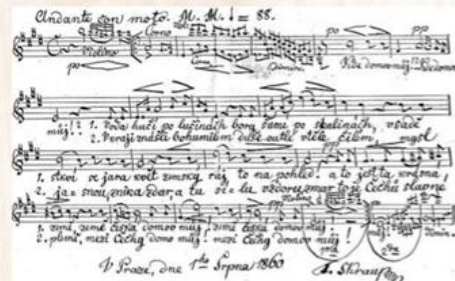 Andante con moto. M. M. ♩ = 88.
Violino Corno
po po pp
Kde domov můj? Kde domov
můj!? 1. Voda hučí po lučinách bory šumí po skalinách, v sadě
2. V kraji znáš-li bohumilém duše outlé v těle čilém, mysl
1. stkví se jara květ zemský ráj to na pohled! a to jest ta krásná,
2. jasnou, znik a zdar, a tu sílu vzdoru zmar to je Čechů slavné
1. země, země česká domov můj, země česká domov můj
2. plémě, mezi Čechy domov můj! mezi Čechy domov můj!
V Praze, dne 1ho Srpna 1860